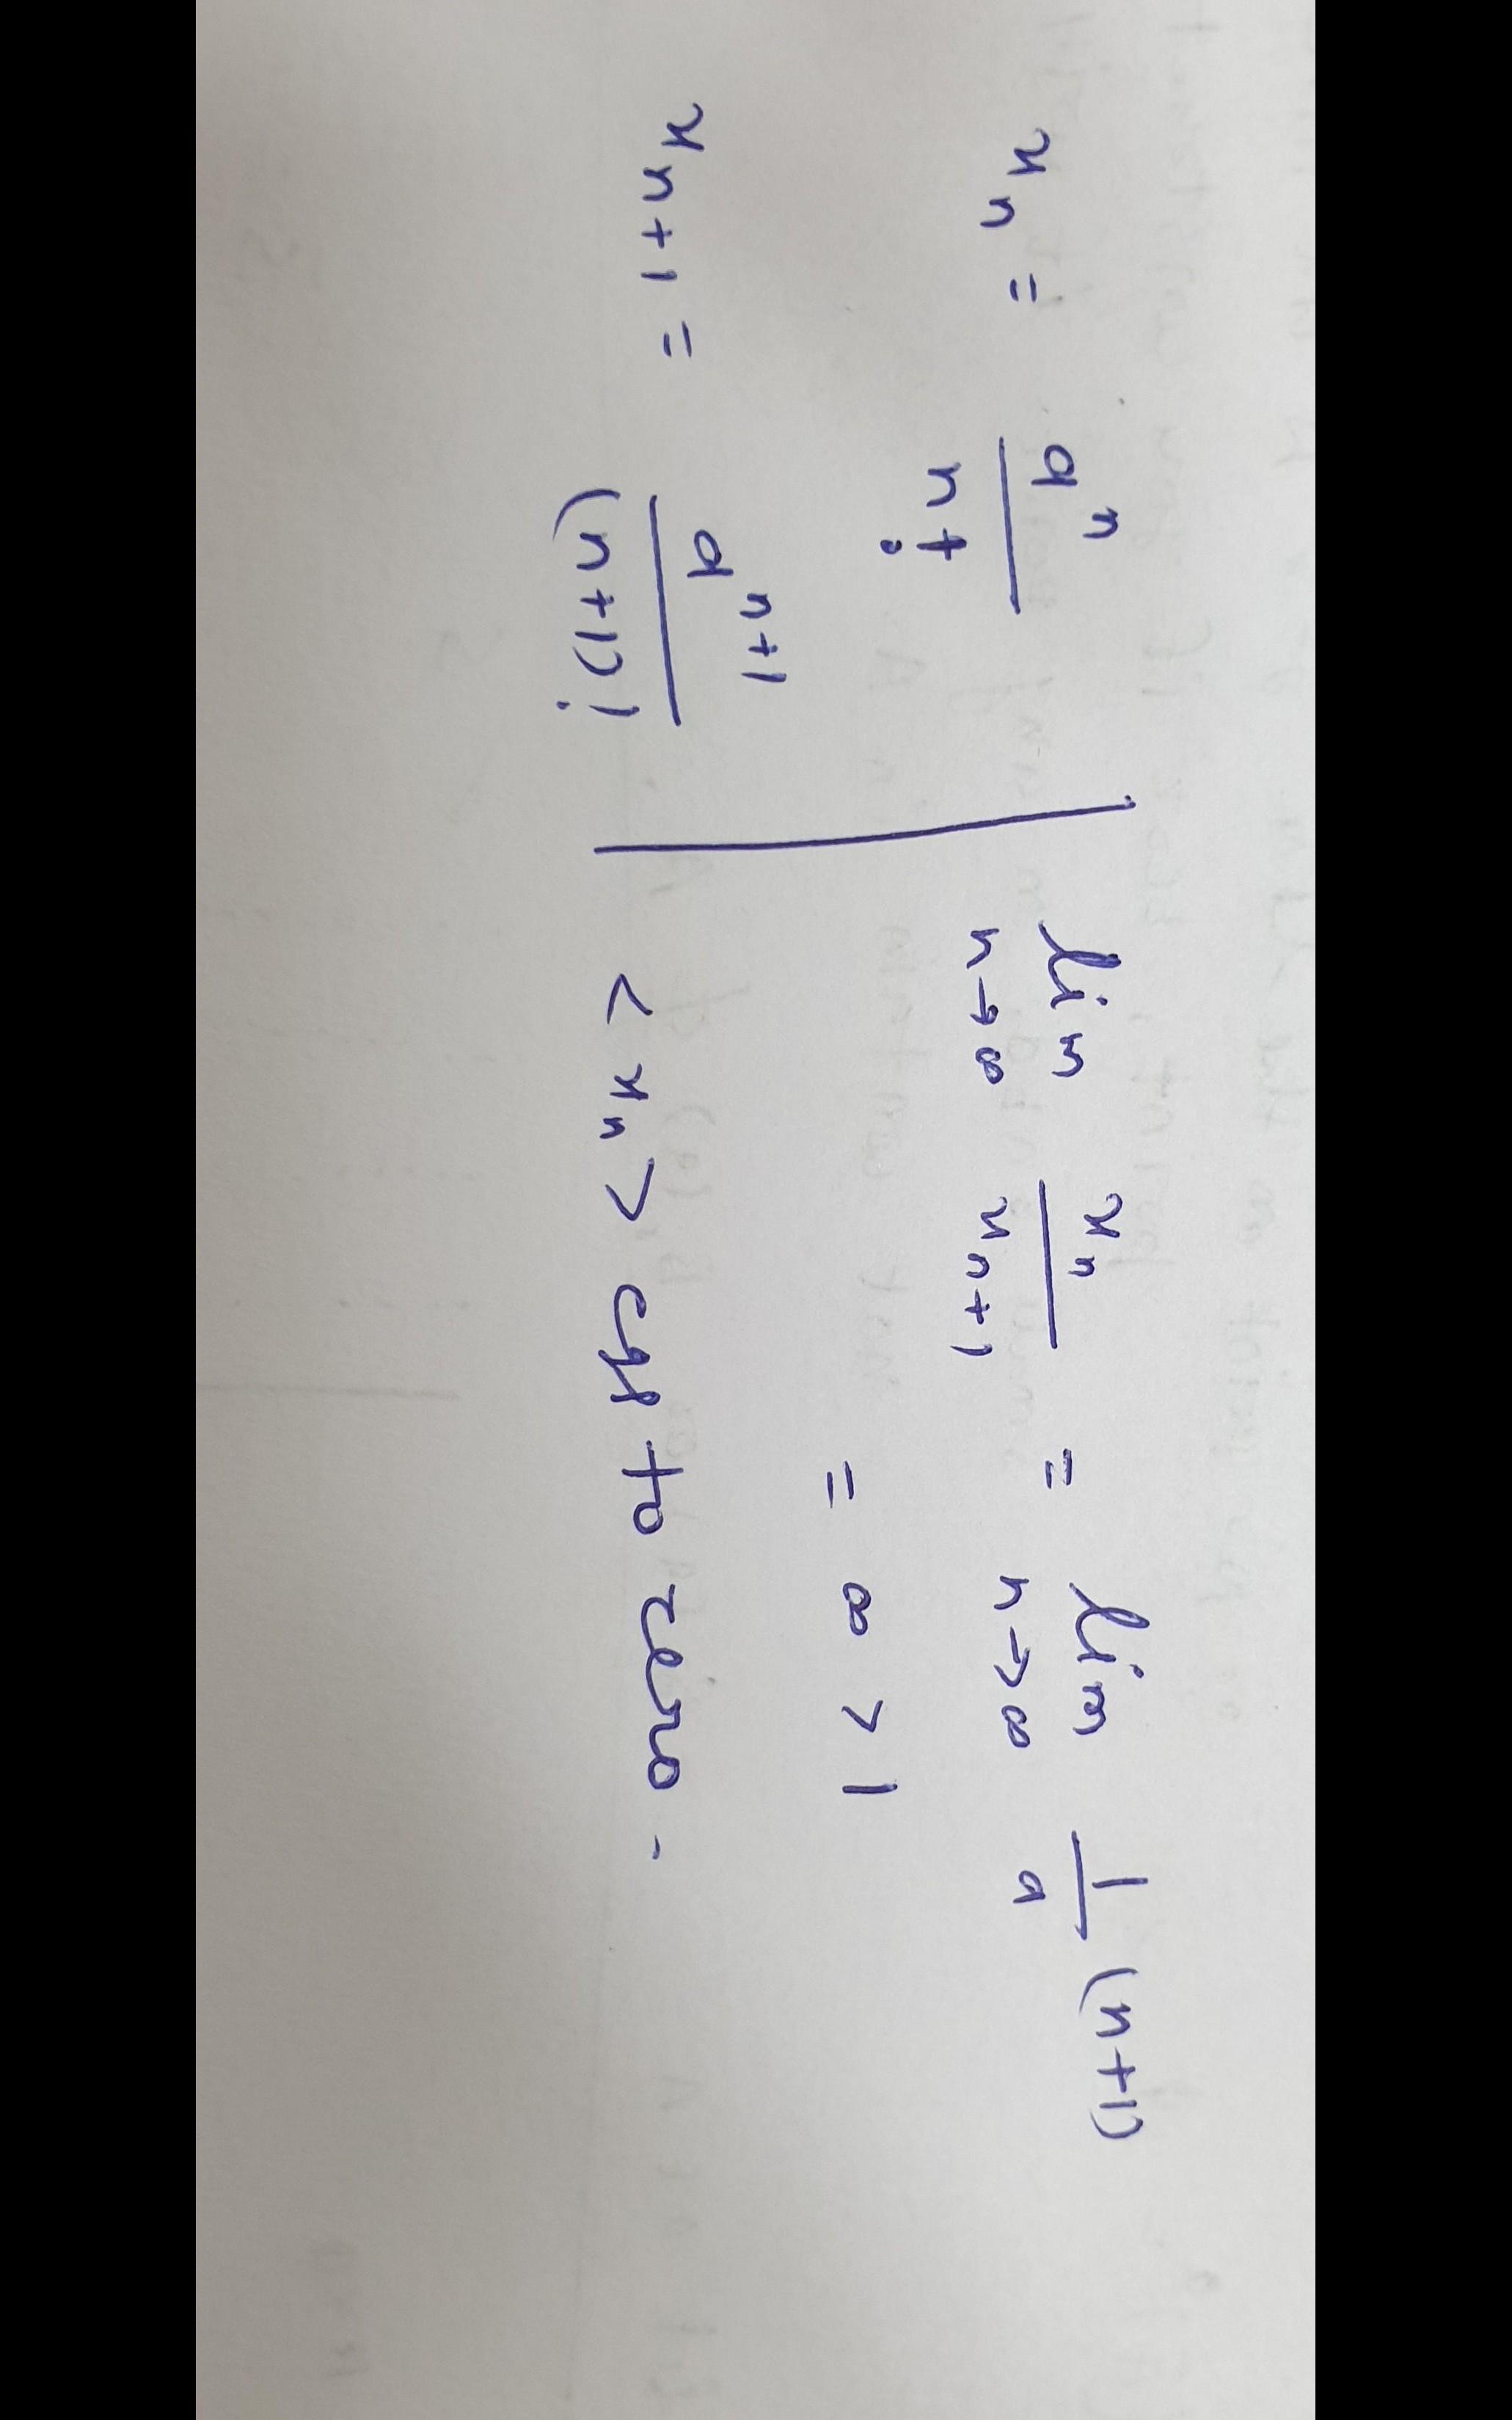 xₙ = aⁿ / n!
xₙ₊₁ = aⁿ⁺¹ / (n+1)!
lim n→∞ xₙ / xₙ₊₁ = lim n→∞ 1/a (n+1)
= ∞ > 1
< xₙ > cgs to zero .